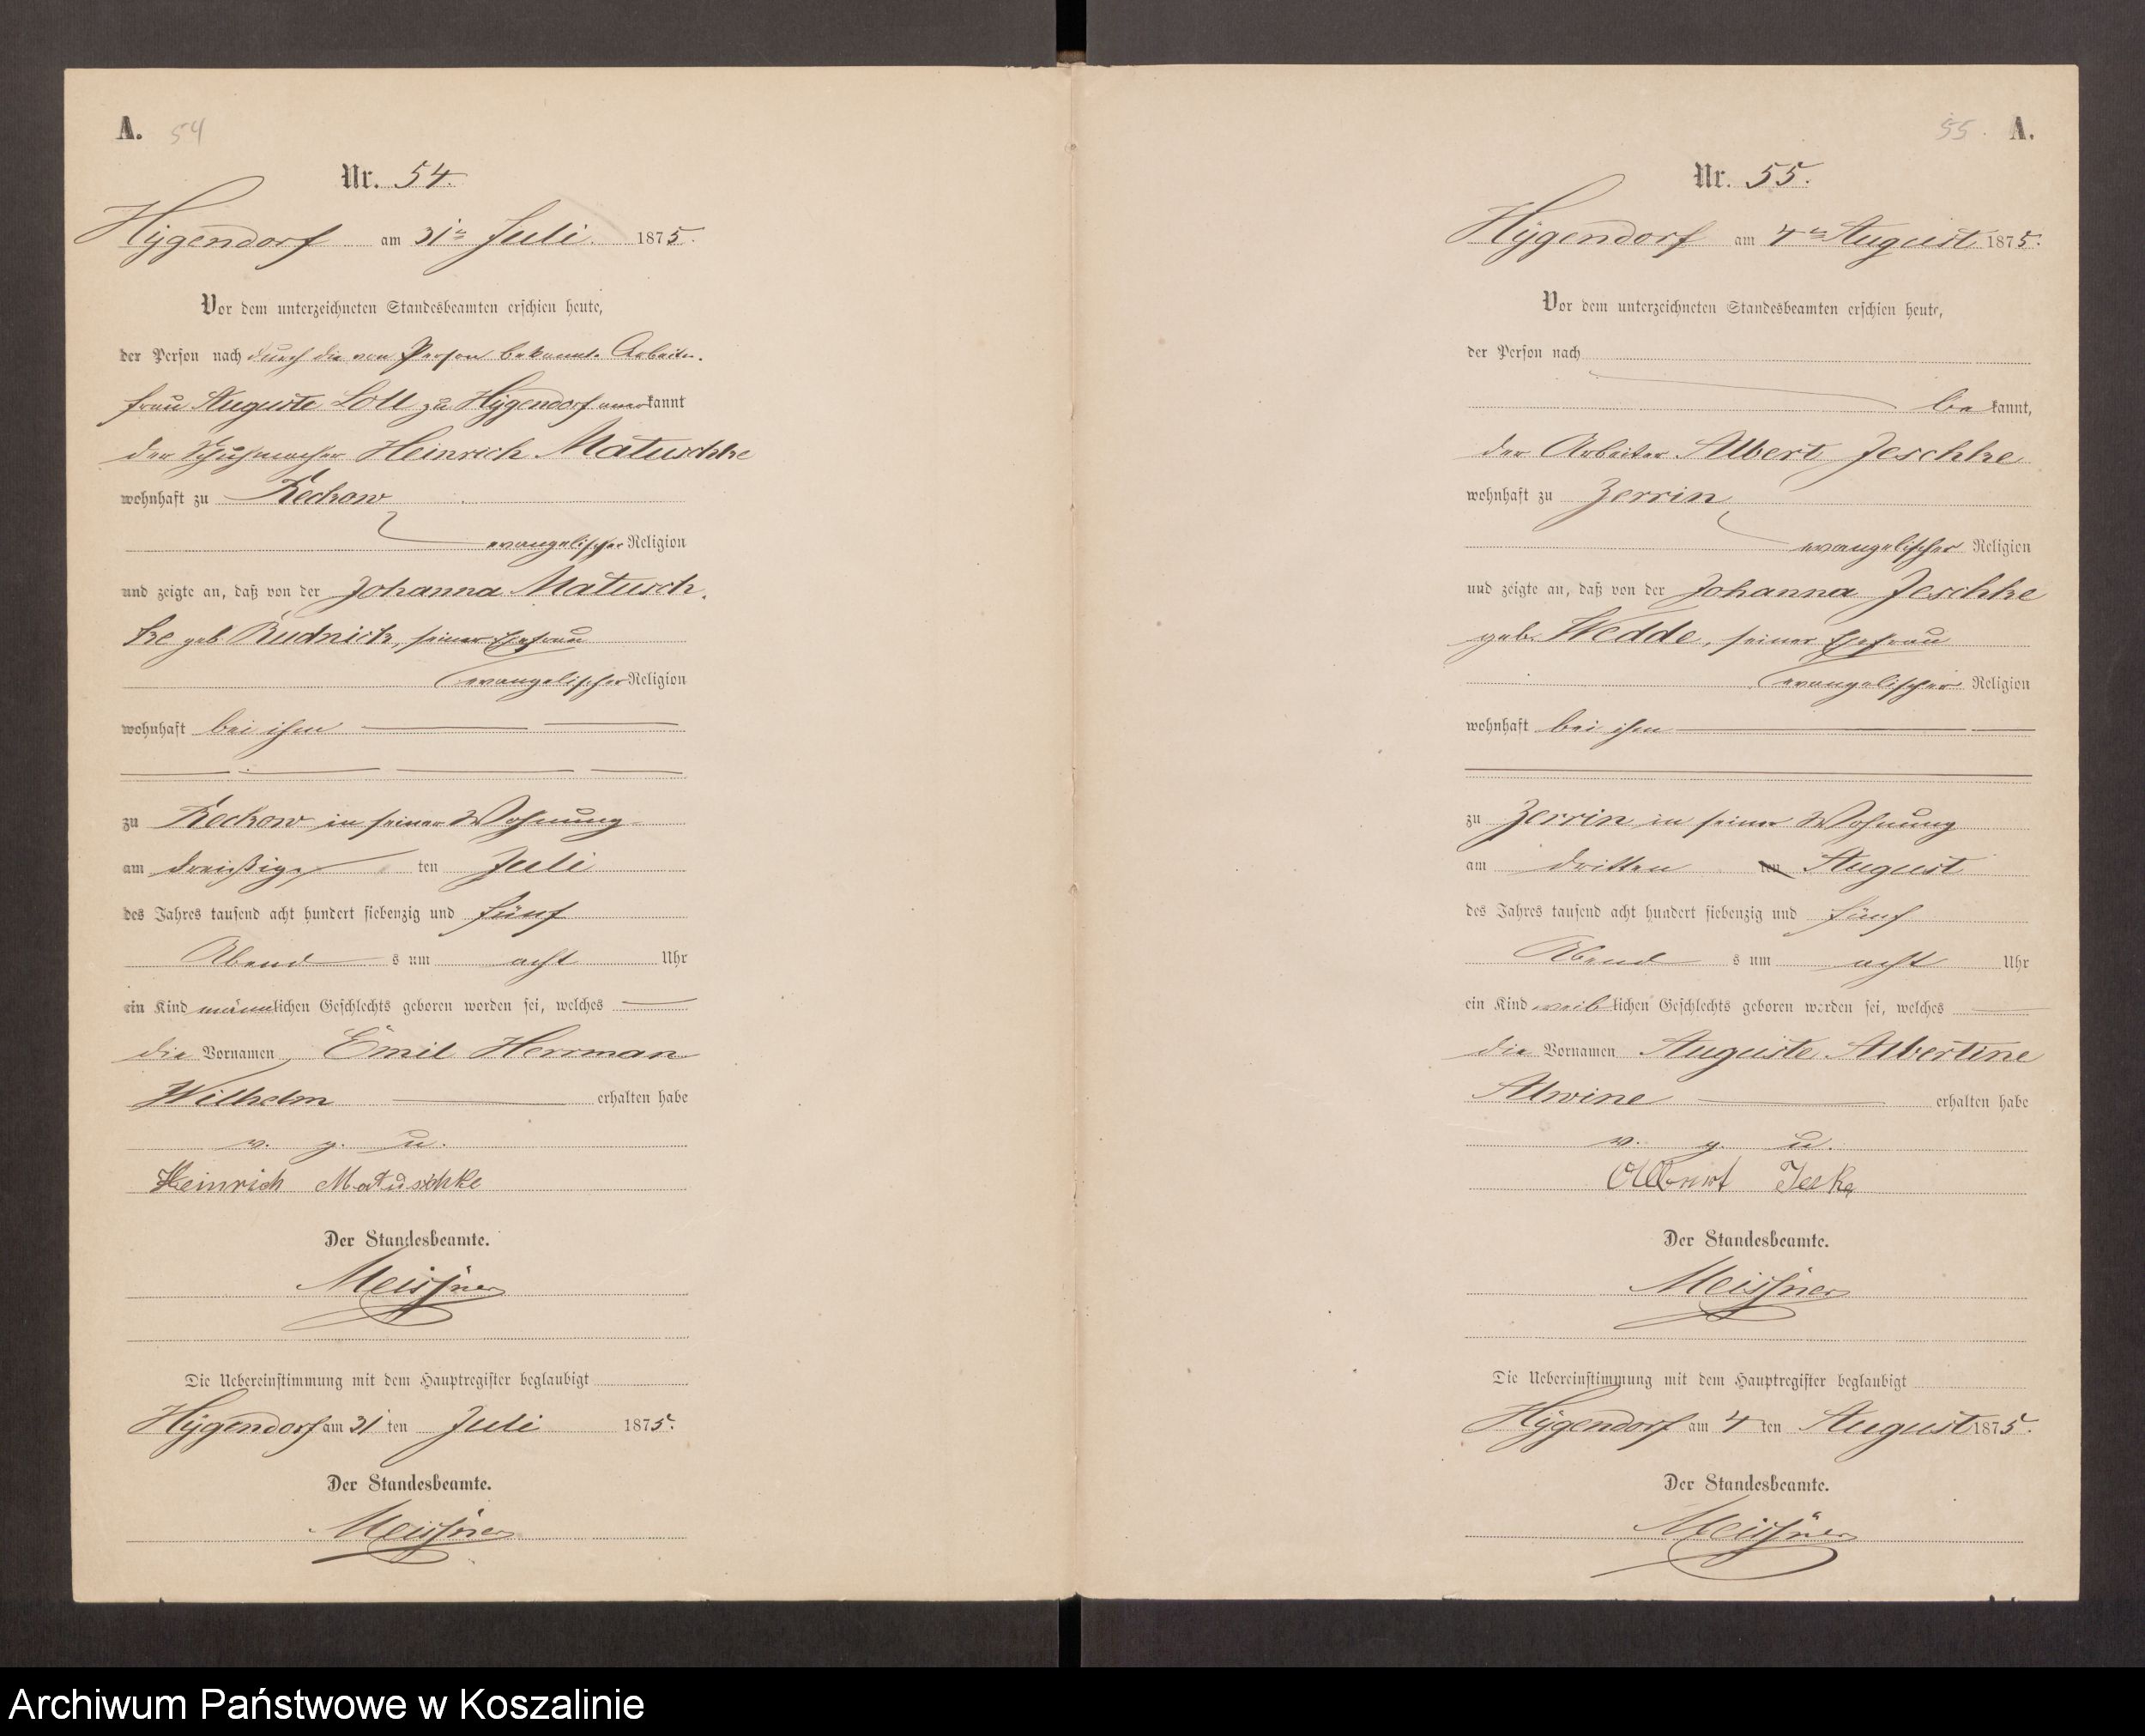 A. 54
Nr. 54.
Hygendorf am 31ten Juli 1875.
Vor dem unterzeichneten Standesbeamten erschien heute,
der Person nach durch die von Person bekannte Arbeiter-
frau Auguste Loll zu Hygendorf anerkannt
der Schuhmacher Heinrich Matuschke
wohnhaft zu Reckow
evangelischer Religion
und zeigte an, daß von der Johanna Matusch-
ke geb. Rudnick, seiner Ehefrau
evangelischer Religion
wohnhaft bei ihm
zu Reckow in seiner Wohnung
am dreißigs ten Juli
des Jahres tausend acht hundert siebenzig und fünf
Abend s um acht Uhr
ein Kind männlichen Geschlechts geboren worden sei, welches
die Vornamen Emil Herrman
Wilhelm erhalten habe
v. g. u.
Heinrich Matuschke
Der Standesbeamte.
Meissner
Die Uebereinstimmung mit dem Hauptregister beglaubigt
Hygendorf am 31ten Juli 1875.
Der Standesbeamte.
Meissner
55. A.
Nr. 55.
Hygendorf am 4ten August 1875.
Vor dem unterzeichneten Standesbeamten erschien heute,
der Person nach
be kannt,
der Arbeiter Albert Jeschke
wohnhaft zu Zerrin
evangelischer Religion
und zeigte an, daß von der Johanna Jeschke
geb. Wedde, seiner Ehefrau
evangelischer Religion
wohnhaft bei ihm
zu Zerrin in seiner Wohnung
am dritten ten August
des Jahres tausend acht hundert siebenzig und fünf
Abend s um acht Uhr
ein Kind weiblichen Geschlechts geboren worden sei, welches
die Vornamen Auguste Albertine
Alwine erhalten habe
v. g. u.
Albert Jeske
Der Standesbeamte.
Meissner
Die Uebereinstimmung mit dem Hauptregister beglaubigt
Hygendorf am 4 ten August 1875.
Der Standesbeamte.
Meissner
Archiwum Państwowe w Koszalinie